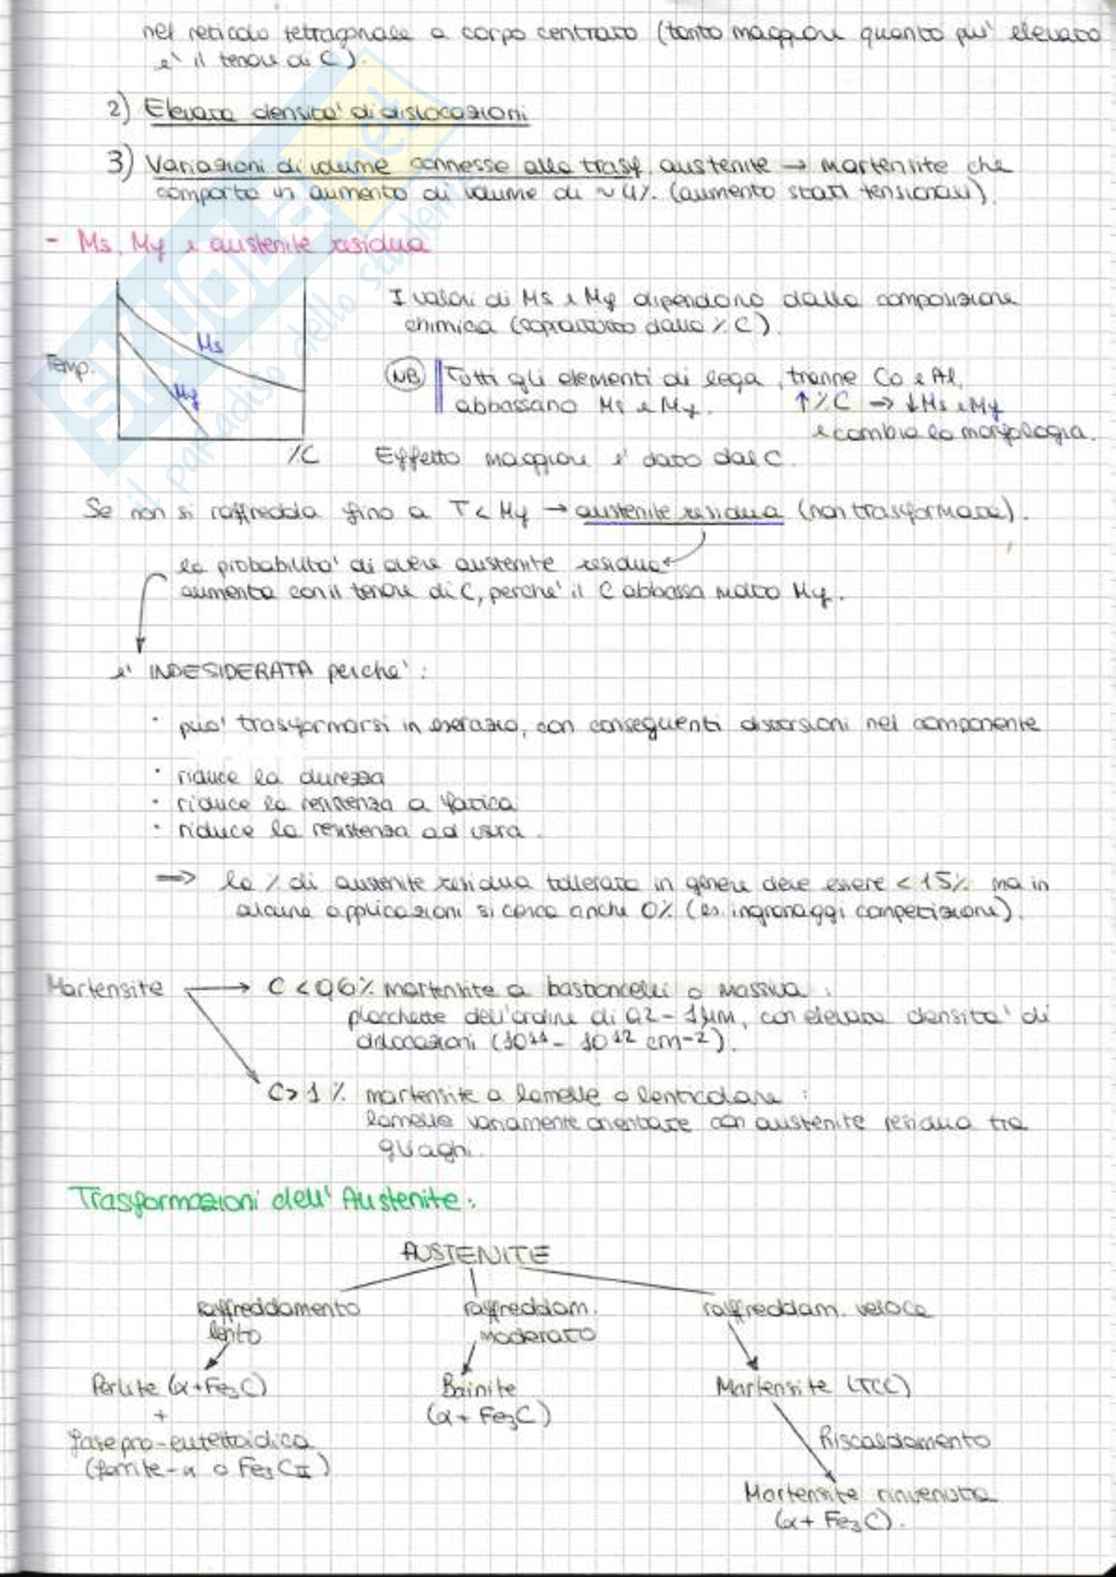 nel reticolo tetragonale a corpo centrato (tanto maggiore quanto piu' elevato
e' il tenore di C).
2) Elevata densita' di dislocazioni
3) Variazioni di volume connesse alla trasf. austenite → martensite che
comporta un aumento di volume di ~4%. (aumento stati tensionali).
- Ms, Mf e austenite residua
Temp.
Ms
Mf
%C
I valori di Ms e Mf dipendono dalla composizione
chimica (soprattutto dalla %C).
NB Tutti gli elementi di lega, tranne Co e Al,
abbassano Ms e Mf. ↑%C → ↓Ms e Mf
e cambia la morfologia.
Effetto maggiore e' dato dal C.
Se non si raffredda fino a T < Mf → austenite residua (non trasformata).
la probabilita' di avere austenite residua
aumenta con il tenore di C, perche' il C abbassa molto Mf.
e' INDESIDERATA perche':
· puo' trasformarsi in esercizio, con conseguenti distorsioni nel componente
· riduce la durezza
· riduce la resistenza a fatica
· riduce la resistenza ad usura.
⇒ la % di austenite residua tollerata in genere deve essere < 15% ma in
alcune applicazioni si cerca anche 0% (es. ingranaggi competizione).
Martensite → C < 0,6% martensite a bastoncelli o massiva:
placchette dell'ordine di 0.2 - 1 μm, con elevata densita' di
dislocazioni (10¹¹ - 10¹² cm-2).
C > 1% martensite a lamelle o lenticolare:
lamelle variamente orientate con austenite residua tra
gli aghi.
Trasformazioni dell'Austenite:
AUSTENITE
raffreddamento
lento
raffreddam.
moderato
raffreddam. veloce
Perlite (α+Fe₃C)
+
fase pro-eutettoidica
(ferrite-α o Fe₃CII)
Bainite
(α+ Fe₃C)
Martensite (TCC)
Riscaldamento
Martensite rinvenuta
(α+ Fe₃C).